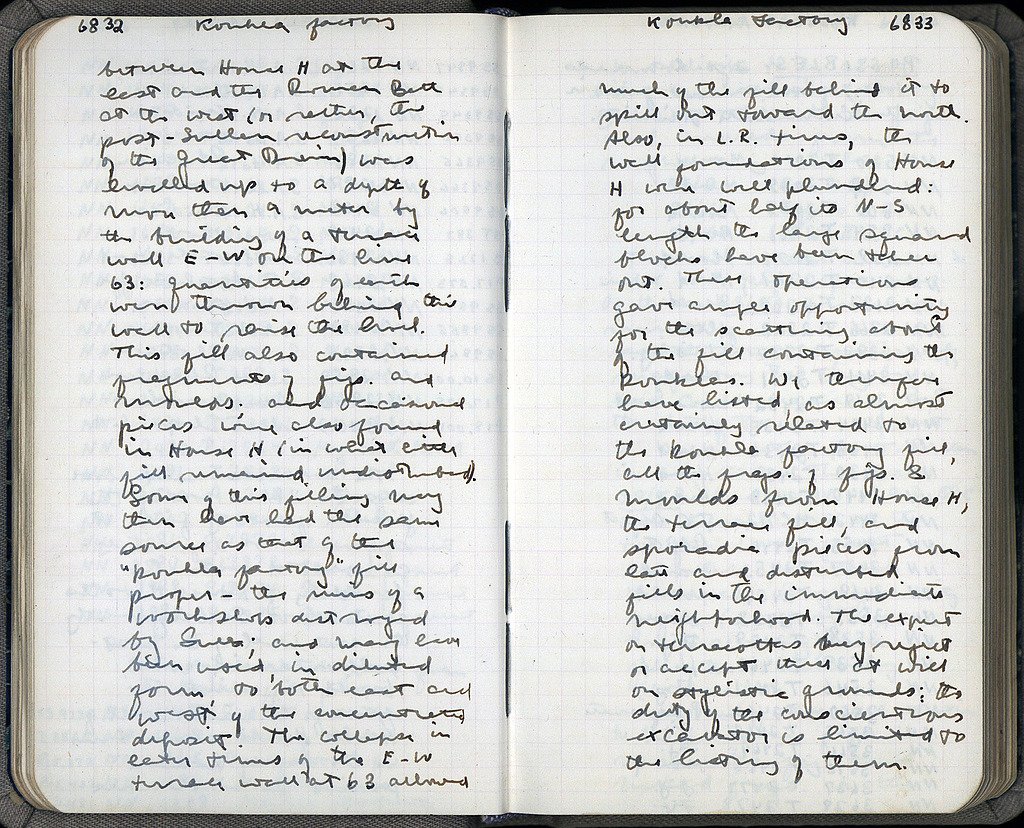 6832 Koukla factory
between House H at the
east and the Roman Bath
at the west (or rather, the
post-Sullan reconstruction
of the Great Drain) was
levelled up to a depth of
more than a meter by
the building of a terrace
wall E-W on the line
63: quantities of earth
were thrown behind this
wall to raise the level.
This fill also contained
fragments of figs. and
moulds: and occasional
pieces were also found
in House H (in what little
fill remained undisturbed).
Some of this filling may
then have had the same
source as that of the
"koukla factory" fill
proper - the ruins of a
workshop destroyed
by Sulla; and may have
been used, in diluted
form to both east and
west of the concentrated
deposit. The collapse in
later times of the E-W
terrace wall at 63 allowed
Koukla Factory 6833
much of the fill behind it to
spill out toward the north.
Also, in L.R. times, the
wall foundations of House
H were well plundered:
for about half its N-S
length the large squared
blocks have been taken
out. These operations
gave ample opportunity
for the scattering about
of the fill containing the
kouklas. We therefore
have listed, as almost
certainly related to
the koukla factory fill,
all the frags. of figs. &
moulds from House H,
the terrace fill, and
sporadic pieces from
late and disturbed
fills in the immediate
neighborhood. The expert
on terracottas may reject
or accept these at will
on stylistic grounds; the
duty of the conscientious
excavator is limited to
the listing of them.